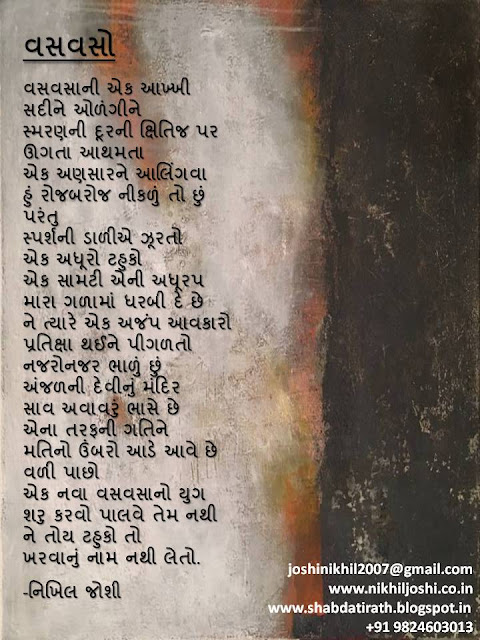 વસવસો
વસવસાની એક આખ્ખી
સદીને ઓળંગીને
સ્મરણની દૂરની ક્ષિતિજ પર
ઊગતા આથમતા
એક અણસારને આલિંગવા
હું રોજબરોજ નીકળું તો છું
પરંતુ
સ્પર્શની ડાળીએ ઝૂરતો
એક અધૂરો ટહુકો
એક સામટી એની અધૂરપ
મારા ગળામાં ધરબી દે છે
ને ત્યારે એક અજંપ આવકારો
પ્રતિક્ષા થઈને પીગળતો
નજરોનજર ભાળું છું
અંજળની દેવીનું મંદિર
સાવ અવાવરું ભાસે છે
એના તરફની ગતિને
મતિનો ઉંબરો આડે આવે છે
વળી પાછો
એક નવા વસવસાનો યુગ
શરુ કરવો પાલવે તેમ નથી
ને તોય ટહુકો તો
ખરવાનું નામ નથી લેતો.
-નિખિલ જોશી
joshinikhil2007@gmail.com
www.nikhiljoshi.co.in
www.shabdatirath.blogspot.in
+91 9824603013